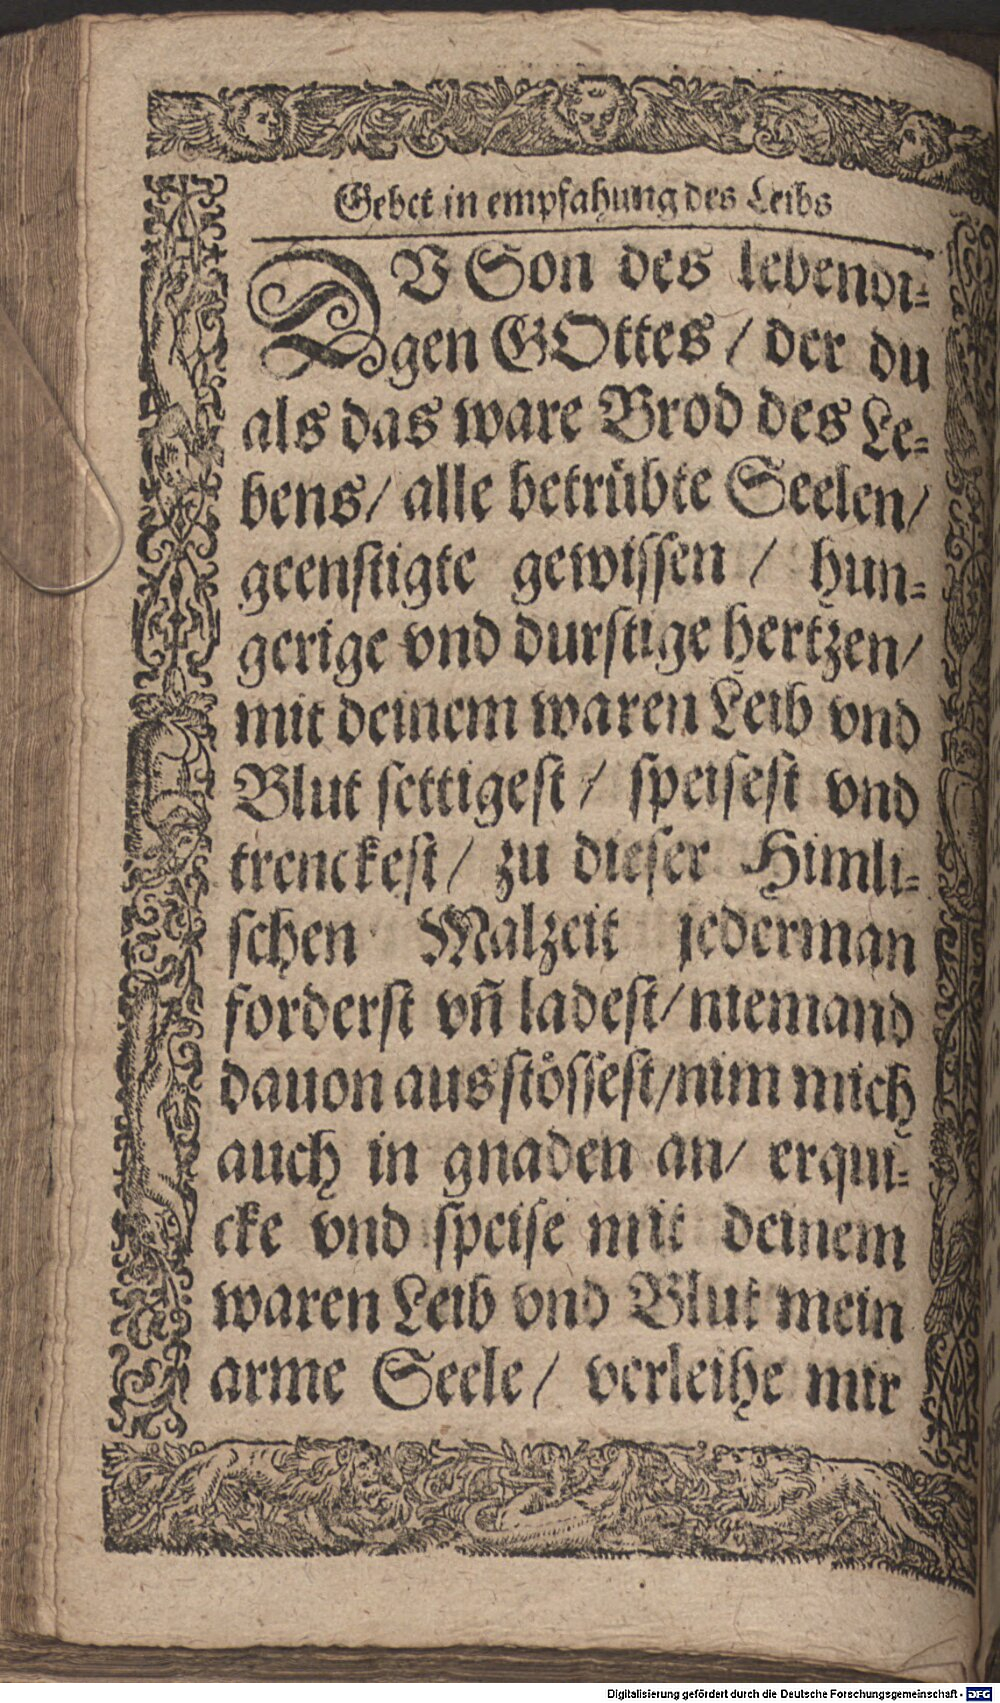 Gebet in empfahung des Leibs
DV Son des lebendi⸗
gen GOttes / der du
als das ware Brod des Le⸗
bens / alle betrübte Seelen /
geenstigte gewissen / hun⸗
gerige vnd durstige hertzen /
mit deinem waren Leib vnd
Blut settigest / speisest vnd
trenckest / zu dieser Himli⸗
schen Malzeit jederman
forderst vñ ladest / niemand
dauon ausstössest / nim mich
auch in gnaden an / erqui⸗
cke vnd speise mit deinem
waren Leib vnd Blut mein
arme Seele / verleihe mir
Digitalisierung gefördert durch die Deutsche Forschungsgemeinschaft - DFG